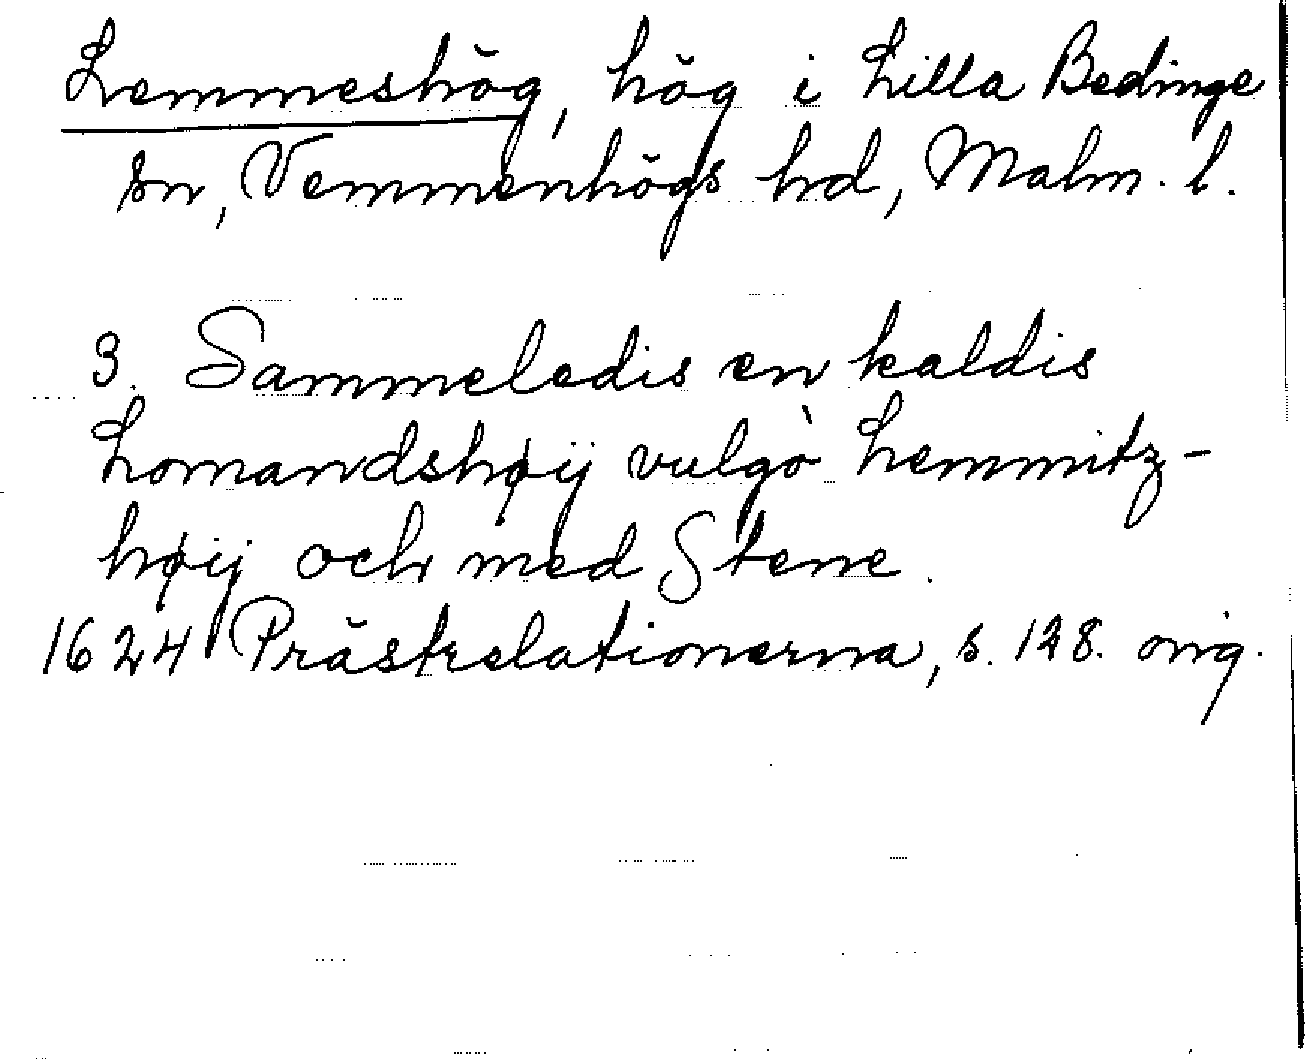 Lemmeshög, hög i Lilla Bedinge
sn, Vemmenhögs hd, Malm. l.
3. Sammeledis en kaldis
Lomandshøij vulgò Lemmitz-
høij och med Stene.
1624 Prästrelationerna, s. 128. orig.